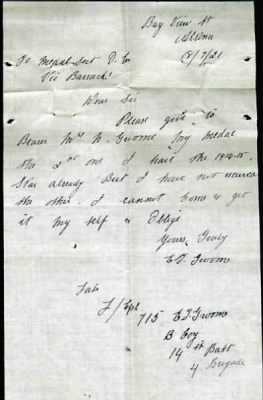 Bay View St
Altona
8/7/21
To Medal Sect D. C
Vic Barracks
Dear Sir
Please give to
Bearer Mrs N. Groome My Medal
the 2nd one I have the 1914-15
Star already But I have not received
the other I cannot Come & get
it My self & Oblige
Yours Truly
E J Groome
Late
L/Cpl
715 E J Groome
B Coy
14th Batt
4 Brigade